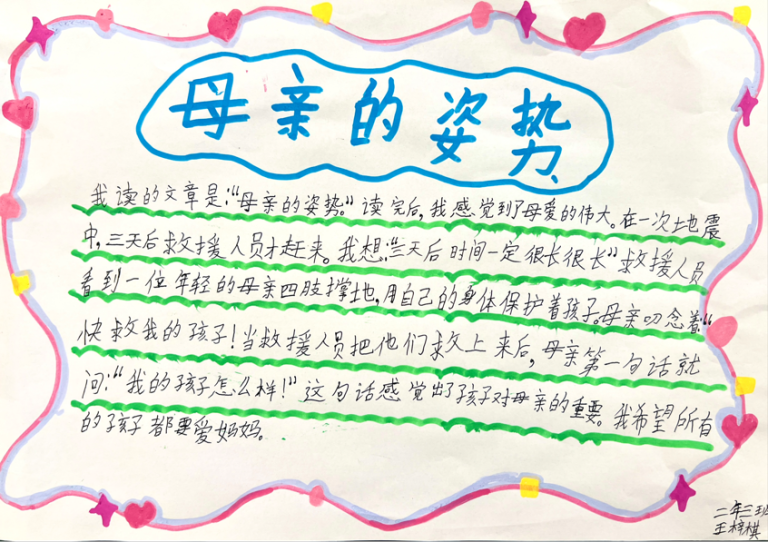 母亲的姿势
我读的文章是:“母亲的姿势。”读完后,我感觉到了母爱的伟大。在一次地震
中,三天后救援人员才赶来。我想:“三天后时间一定很长很长”救援人员
看到一位年轻的母亲四肢撑地,用自己的身体保护着孩子。母亲叨念着“
快救我的孩子!当救援人员把他们救上来后,母亲第一句话就
问:“我的孩子怎么样!”这句话感觉出了孩子对母亲的重要。我希望所有
的孩子都要爱妈妈。
二年三班
王梓棋